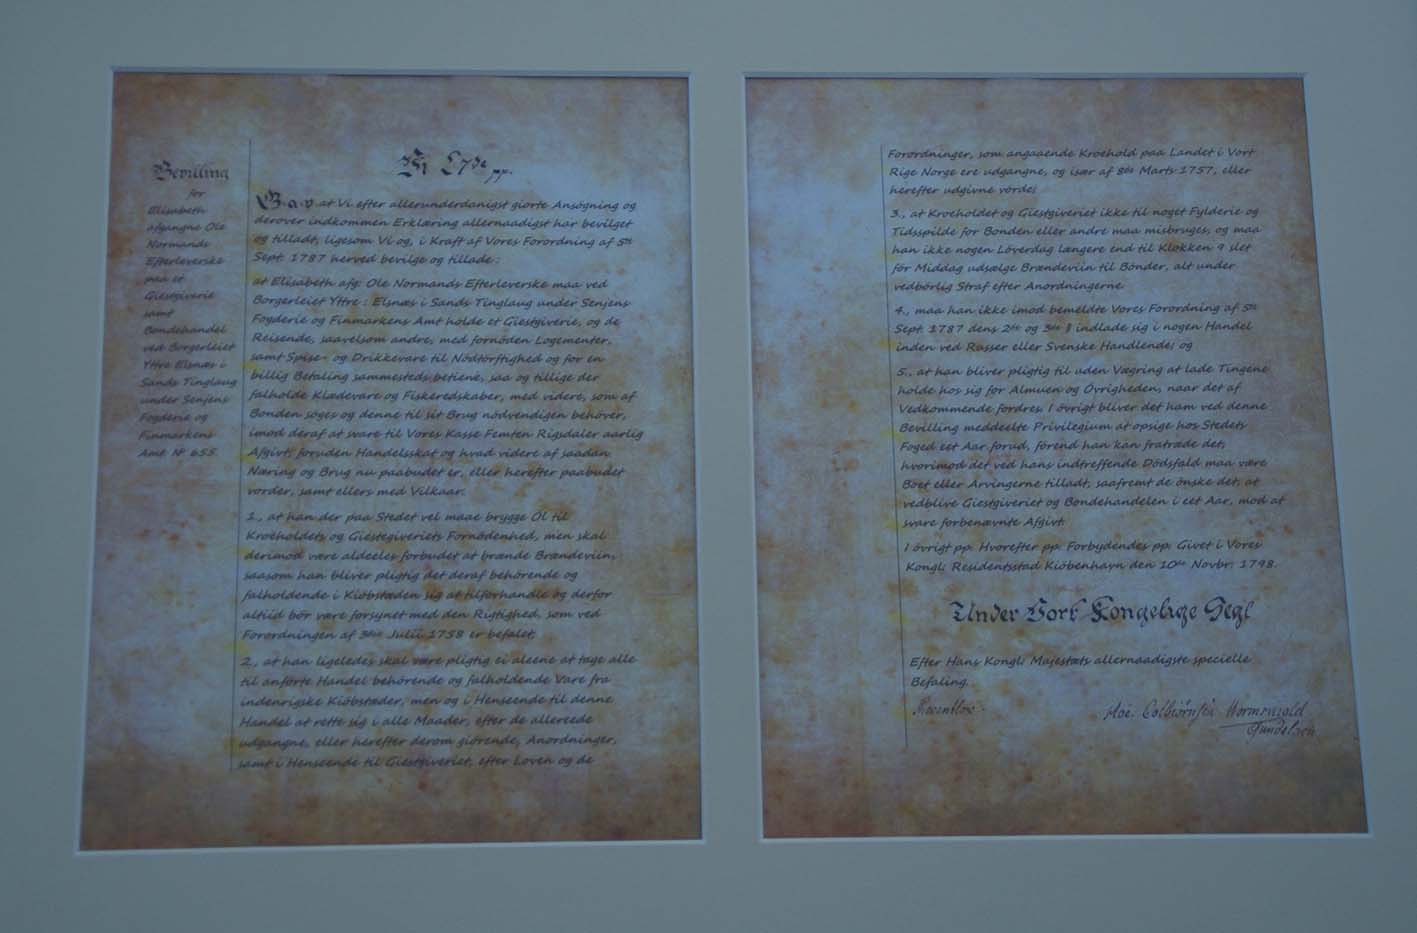 Bevilling
for
Elisabeth
afgangne Ole
Normands
Efterleverske
paa et
Giestgiverie
samt
Bondehandel
ved Borgerleiet
Yttre Elsnæs i
Sands Tinglaug
under Senjens
Fogderie og
Finmarkens
Amt Nº 655.
pp.
G.a.v. at Vi efter allerunderdanigst giorte Ansøgning og
derover indkommen Erklæring allernaadigst har bevilget
og tilladt, ligesom Vi og, i Kraft af Vores Forordning af 5te
Sept. 1787 herved bevilge og tillade:
at Elisabeth afg: Ole Normands Efterleverske maa ved
Borgerleiet Yttre: Elsnæs i Sands Tinglaug under Senjens
Fogderie og Finmarkens Amt holde et Giestgiverie, og de
Reisende, saavelsom andre, med fornöden Logementer,
samt Spise- og Drikkevare til Nödtörftighed og for en
billig Betaling sammesteds betiene, saa og tillige der
falholde Klædevare og Fiskeredskaber, med videre, som af
Bonden søges og denne til sit Brug nödvendigen behöver,
imod deraf at svare til Vores Kasse Femten Rigsdaler aarlig
Afgivt; foruden Handelsskat og hvad videre af saadan
Næring og Brug nu paabudet er, eller herefter paabudet
vorder, samt ellers med Vilkaar:
1., at han der paa Stedet vel maae brygge Öl til
Kroeholdets og Giestegiveriets Fornödenhed, men skal
derimod være aldeeles forbudet at brænde Brændeviin,
saasom han bliver pligtig det deraf behörende og
falholdende i Kiöbstæden sig at tilforhandle og derfor
altiid bör være forsynet med den Rigtighed, som ved
Forordningen af 3die Julii 1758 er befalet;
2., at han ligeledes skal være pligtig ei aleene at tage alle
til anförte Handel behörende og falholdende Vare fra
indenrigske Kiöbstæder, men og i Henseende til denne
Handel at rette sig i alle Maader, efter de allereede
udgangne, eller herefter derom giörende, Anordninger,
samt i Henseende til Giestgiveriet, efter Loven og de
Forordninger, som angaaende Kroehold paa Landet i Vort
Rige Norge ere udgangne, og især af 8de Marts 1757, eller
herefter udgivne vorde;
3., at Kroeholdet og Giestgiveriet ikke til noget Fylderie og
Tidsspilde for Bonden eller andre maa misbruges, og maa
han ikke nogen Löverdag længere end til Klokken 9 slet
för Middag udsælge Brændeviin til Bönder, alt under
vedbörlig Straf efter Anordningerne.
4., maa han ikke imod bemeldte Vores Forordning af 5te
Sept. 1787 dens 2den og 3die § indlade sig i nogen Handel
inden ved Russer eller Svenske Handlende; og
5., at han bliver pligtig til uden Vægring at lade Tingene
holde hos sig for Almuen og Övrigheden, naar det af
Vedkommende fordres. I övrigt bliver det ham ved denne
Bevilling meddeelte Privilegium at opsige hos Stedets
Foged eet Aar forud, förend han kan fratræde det;
hvorimod det ved hans indtreffende Dödsfald maa være
Boet eller Arvingerne tilladt, saafremt de önske det, at
vedblive Giestgiveriet og Bondehandelen i eet Aar, mod at
svare forbenævnte Afgivt.
I övrigt pp. Hvorefter pp. Forbydendes pp. Givet i Vores
Kongl: Residentsstad Kiöbenhavn den 10de Novbr: 1798.
Under Vort Kongelige Segl
Efter Hans Kongl: Majestæts allernaadigste specielle
Befaling.
Reventlow. Moe. Colbiørnsen Wormskiold